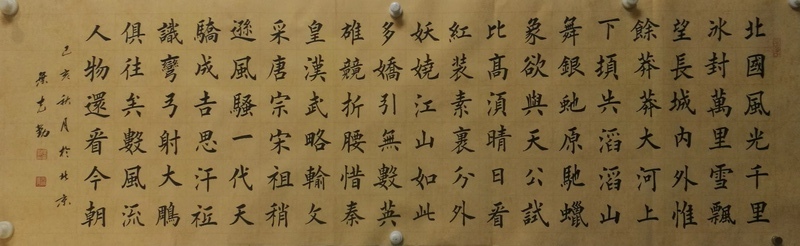 北國風光千里
冰封萬里雪飄
望長城內外惟
餘莽莽大河上
下頃失滔滔山
舞銀虵原馳蠟
象欲與天公試
比高須晴日看
紅装素裹分外
妖嬈江山如此
多嬌引無數英
雄競折腰惜秦
皇漢武略輸文
采唐宗宋祖稍
遜風騷一代天
驕成吉思汗祗
識彎弓射大鵰
俱往矣數風流
人物還看今朝
己亥秋月於北京